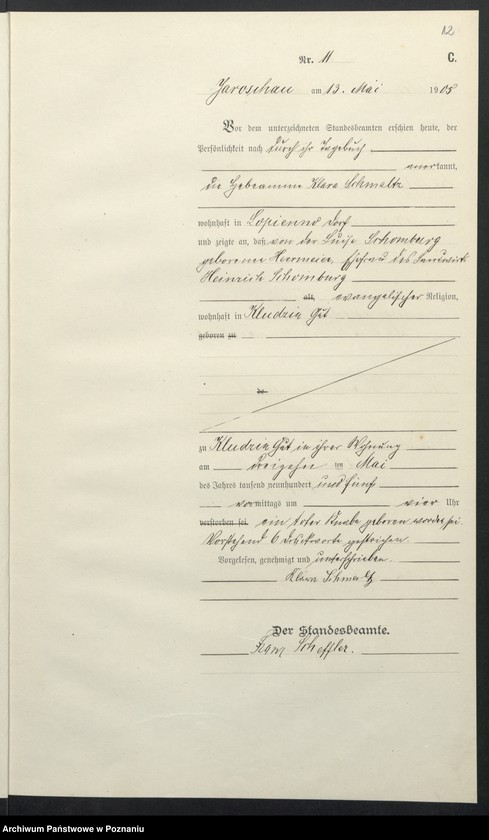 12
Nr. 11 C.
Jaroschau am 13. Mai 1905
Vor dem unterzeichneten Standesbeamten erschien heute, der
Persönlichkeit nach durch ihr Tagebuch
anerkannt,
die Hebamme Klara Schmaltz
wohnhaft in Lopienno Dorf
und zeigte an, daß von der Luise Schomburg
geborene Heermeier, Ehefrau des Landwirts
Heinrich Schomburg
alt, evangelischer Religion,
wohnhaft in Kludzin Gut
geboren zu
de
zu Kludzin Gut in ihrer Wohnung
am dreizehn ten Mai
des Jahres tausend neunhundert und fünf
vormittags um vier Uhr
verstorben sei. ein toter Knabe geboren worden sei.
Vorstehend 6 Druckworte gestrichen.
Vorgelesen, genehmigt und unterschrieben.
Klara Schmaltz
Der Standesbeamte.
Scheffler.